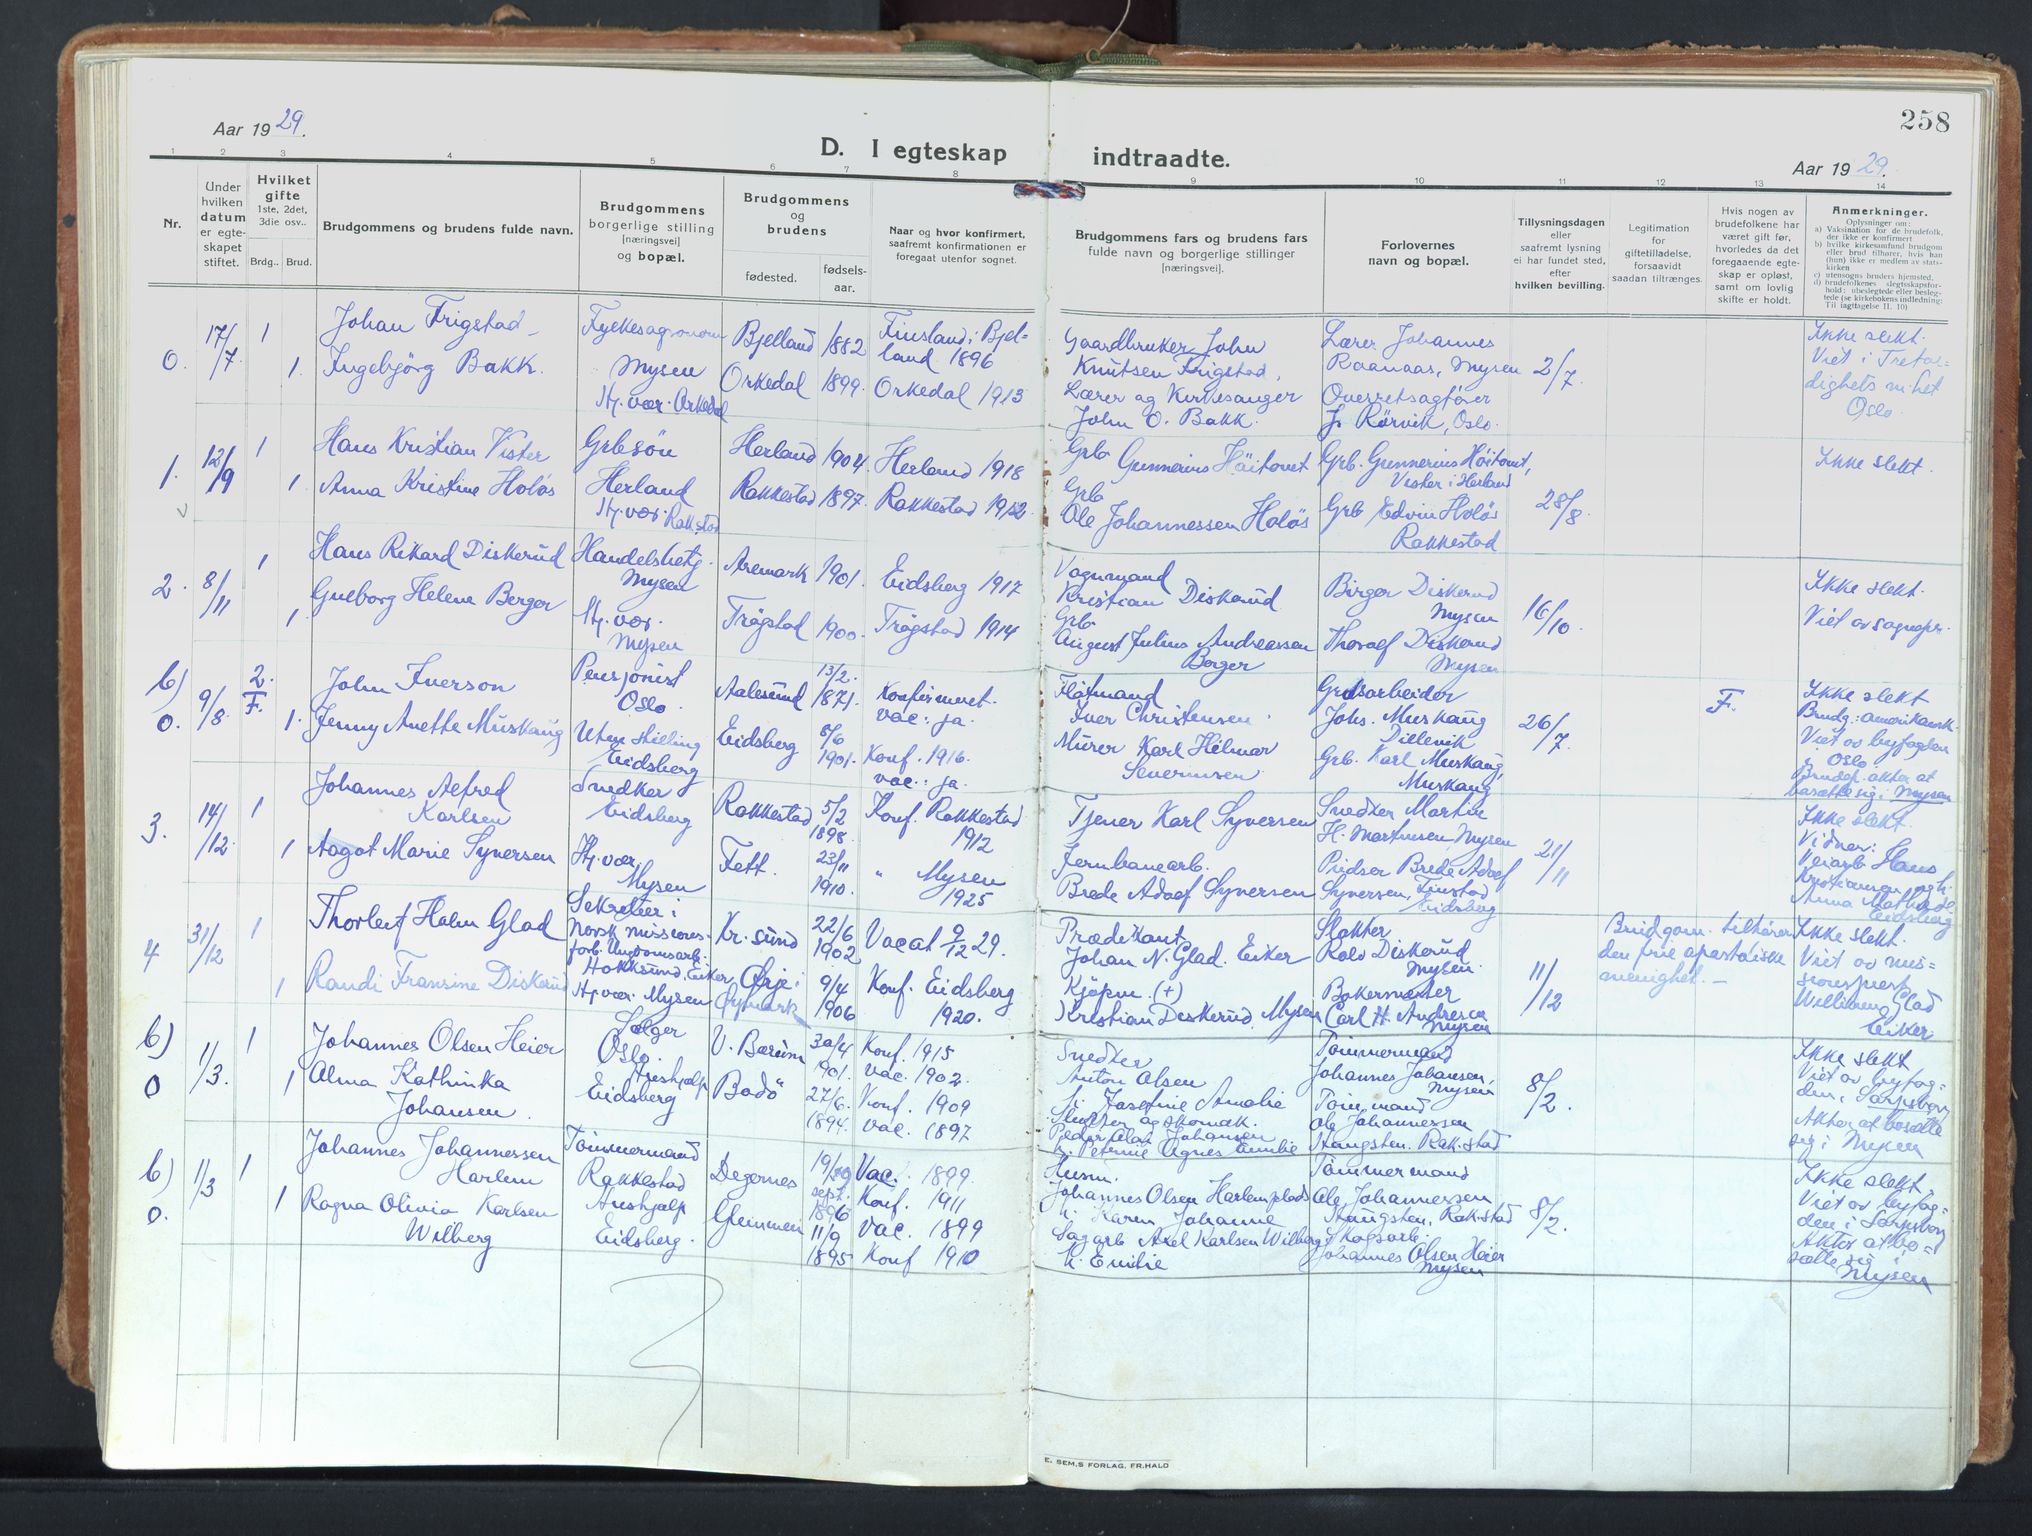 258
Aar 1929.
D. I egteskap indtraadte.
Aar 1929.
1 2 3 4 5 6 7 8 9 10 11 12 13 14
Nr.
Under hvilken datum er egteskapet stiftet.
Hvilket gifte 1ste, 2det, 3die osv..
Brdg.. Brud.
Brudgommens og brudens fulde navn.
Brudgommens borgerlige stilling [næringsvei] og bopæl.
Brudgommens og brudens
fødested. fødselsaar.
Naar og hvor konfirmert, saafremt konfirmationen er foregaat utenfor sognet.
Brudgommens fars og brudens fars fulde navn og borgerlige stillinger [næringsvei].
Forlovernes navn og bopæl.
Tillysningsdagen eller saafremt lysning ei har fundet sted, efter hvilken bevilling.
Legitimation for giftetilladelse, forsaavidt saadan tiltrænges.
Hvis nogen av brudefolkene har været gift før, hvorledes da det foregaaende egteskap er opløst, samt om lovlig skifte er holdt.
Anmerkninger.
Oplysninger om:
a) Vaksination for de brudefolk, der ikke er konfirmert
b) hvilke kirkesamfund brudgom eller brud tilhører, hvis han (hun) ikke er medlem av statskirken
c) utensogns bruders hjemsted.
d) brudefolkenes slegtsskapsforhold: ubeslegtede eller beslegtede (se kirkebokens indledning: Til iagttagelse II. 10)
0. 17/7 1 1.
Johan Frigstad
Ingebjörg Bakk.
Fylkesagronom
Mysen
Hj. vær. Orkedal
Bjelland 1882
Orkedal 1899.
Finsland i Bjelland 1896
Orkedal 1913
Gaardbruker John
Knutsen Frigstad,
Lærer og Kirkesanger
John O. Bakk.
Lærer Johannes
Raanaas, Mysen
Overretsagfører
J. Rørvik, Oslo.
2/7.
Ikke slekt.
Viet i Trefoldighets m.het
Oslo.
1. 12/9 1 1.
Hans Kristian Vister
Anna Kristine Holøs
Grbsön
Herland
Hj. vær. Rak.stad
Herland 1904
Rakkestad 1897.
Herland 1918
Rakkestad 1912
Grb Gunnerius Höitomt
Grb
Ole Johannessen Holøs
Grb. Gunnerius Höitomt,
Vister i Herland
Grb Edvin Holøs
Rakkestad
28/8.
Ikke slekt.
2. 8/11 1 1.
Hans Rikard Diskerud
Gueborg Helene Berger
Handelsbetj.
Mysen
Hj. vær.
Mysen
Aremark 1901.
Trögstad 1900.
Eidsberg 1917
Trögstad 1914
Vognmand
Kristian Diskerud.
Grb
August Julius Andreassen
Berger
Birger Diskerud
Mysen
Thoralf Diskerud
Mysen
16/10.
Ikke slekt.
Viet av sognepr.
b) 0. 9/8 2. F. 1.
John Iverson
Jenny Anette Muskaug
Pensjonist
Oslo.
Uten stilling
Eidsberg
Aalesund 13/2. 1871.
Eidsberg 8/6 1901.
Konfirmert.
vac: ja.
Konf. 1916.
vac.: ja.
Fløtmand
Iver Christensen.
Murer Karl Hilmar
Severinsen.
Grusarbeider
Johs. Muskaug
Dillevik
Grb. Karl Muskaug,
Muskaug
26/7.
F.
Ikke slekt
Brudg: amerikansk.
Viet av byfogden
i Oslo.
Brudep. akter at
bosætte sig i Mysen
3. 14/12. 1 1
Johannes Alfred
Karlsen
Aagot Marie Syversen
Snedker
Eidsberg
Hj. vær.
Mysen
Rakkestad 5/2 1898.
Fett. 23/11 1910.
Konf. Rakkestad
1912
" Mysen
1925
Tjener Karl Syversen
Jernbanearb.
Brede Adolf Syversen
Snedker Martin
H. Martinsen, Mysen
Pudser Brede Adolf
Syversen, Finstad
Eidsberg
21/11
Ikke slekt.
Vidner:
Veiarb Hans
Kristiansen og h.
Anna Mathilde
Eidsberg
4 31/12 1 1
Thorleif Holm Glad
Randi Fransine Diskerud
Sekretær i
Norsk missionsforb. Ungdomsarb.
Hokksund, Eiker
Hj. vær. Mysen
Kr.sund 22/6 1902
Ørje i
Øymark 9/4 1906
Vacat 9/12 29.
Konf. Eidsberg
1920.
Prædikant
Johan N. Glad. Eiker
Kjøpm. (+)
Kristian Diskerud. Mysen
Slakter
Rolv Diskerud
Mysen.
Bakermester
Carl H. Andresen
Mysen
11/12
Brudgom. tilhører
den frie apostoliske
menighet. –
Ikke slekt.
Viet av missionsprest
William Glad
Eiker
b) 0 1/3. 1 1
Johannes Olsen Heier
Alma Kathinka
Johansen.
Selger
Oslo.
Hushjelp
Eidsberg
V. Bærum 30/4 1901.
Bodö 27/6. 1894.
Konf. 1915
vac. 1902.
Konf. 1909
vac. 1897
Snedker
Anton Olsen
h. Josefine Amalie
og skomak.
Peder Olai Johansen
h. Peternie Agnes Emilie
Tømmermand
Johannes Johansen,
Mysen
Tøm.mand
Ole Johannessen
Haugsten. Rak.stad
8/2.
Ikke slekt
Viet av byfogden i Sarpsborg
Akter at bosætte
sig i Mysen
b) 0. 1/3 1 1
Johannes Johannessen
Harlem
Ragna Olivia Karlsen
Wilberg
Tømmermand
Rakkestad
Hushjelp
Eidsberg.
Degernes 19/ sept. 1896
Glemmen 11/9 1895
Vac. 1899.
Konf. 1911
Vac. 1899
Konf 1910
Husm.
Johannes Olsen Harlemplads
h. Karen Johanne
Sagarb Axel Karlsen Wilberg
h. Emilie
Tømmermand
Ole Johannessen
Haugsten, Rak.stad
Skogsarb.
Johannes Olsen Heier
Mysen
8/2.
Ikke slekt.
Viet av byfogden i Sarpsborg
Akter at bosætte sig i
Mysen
E. SEM.S FORLAG, FR.HALD